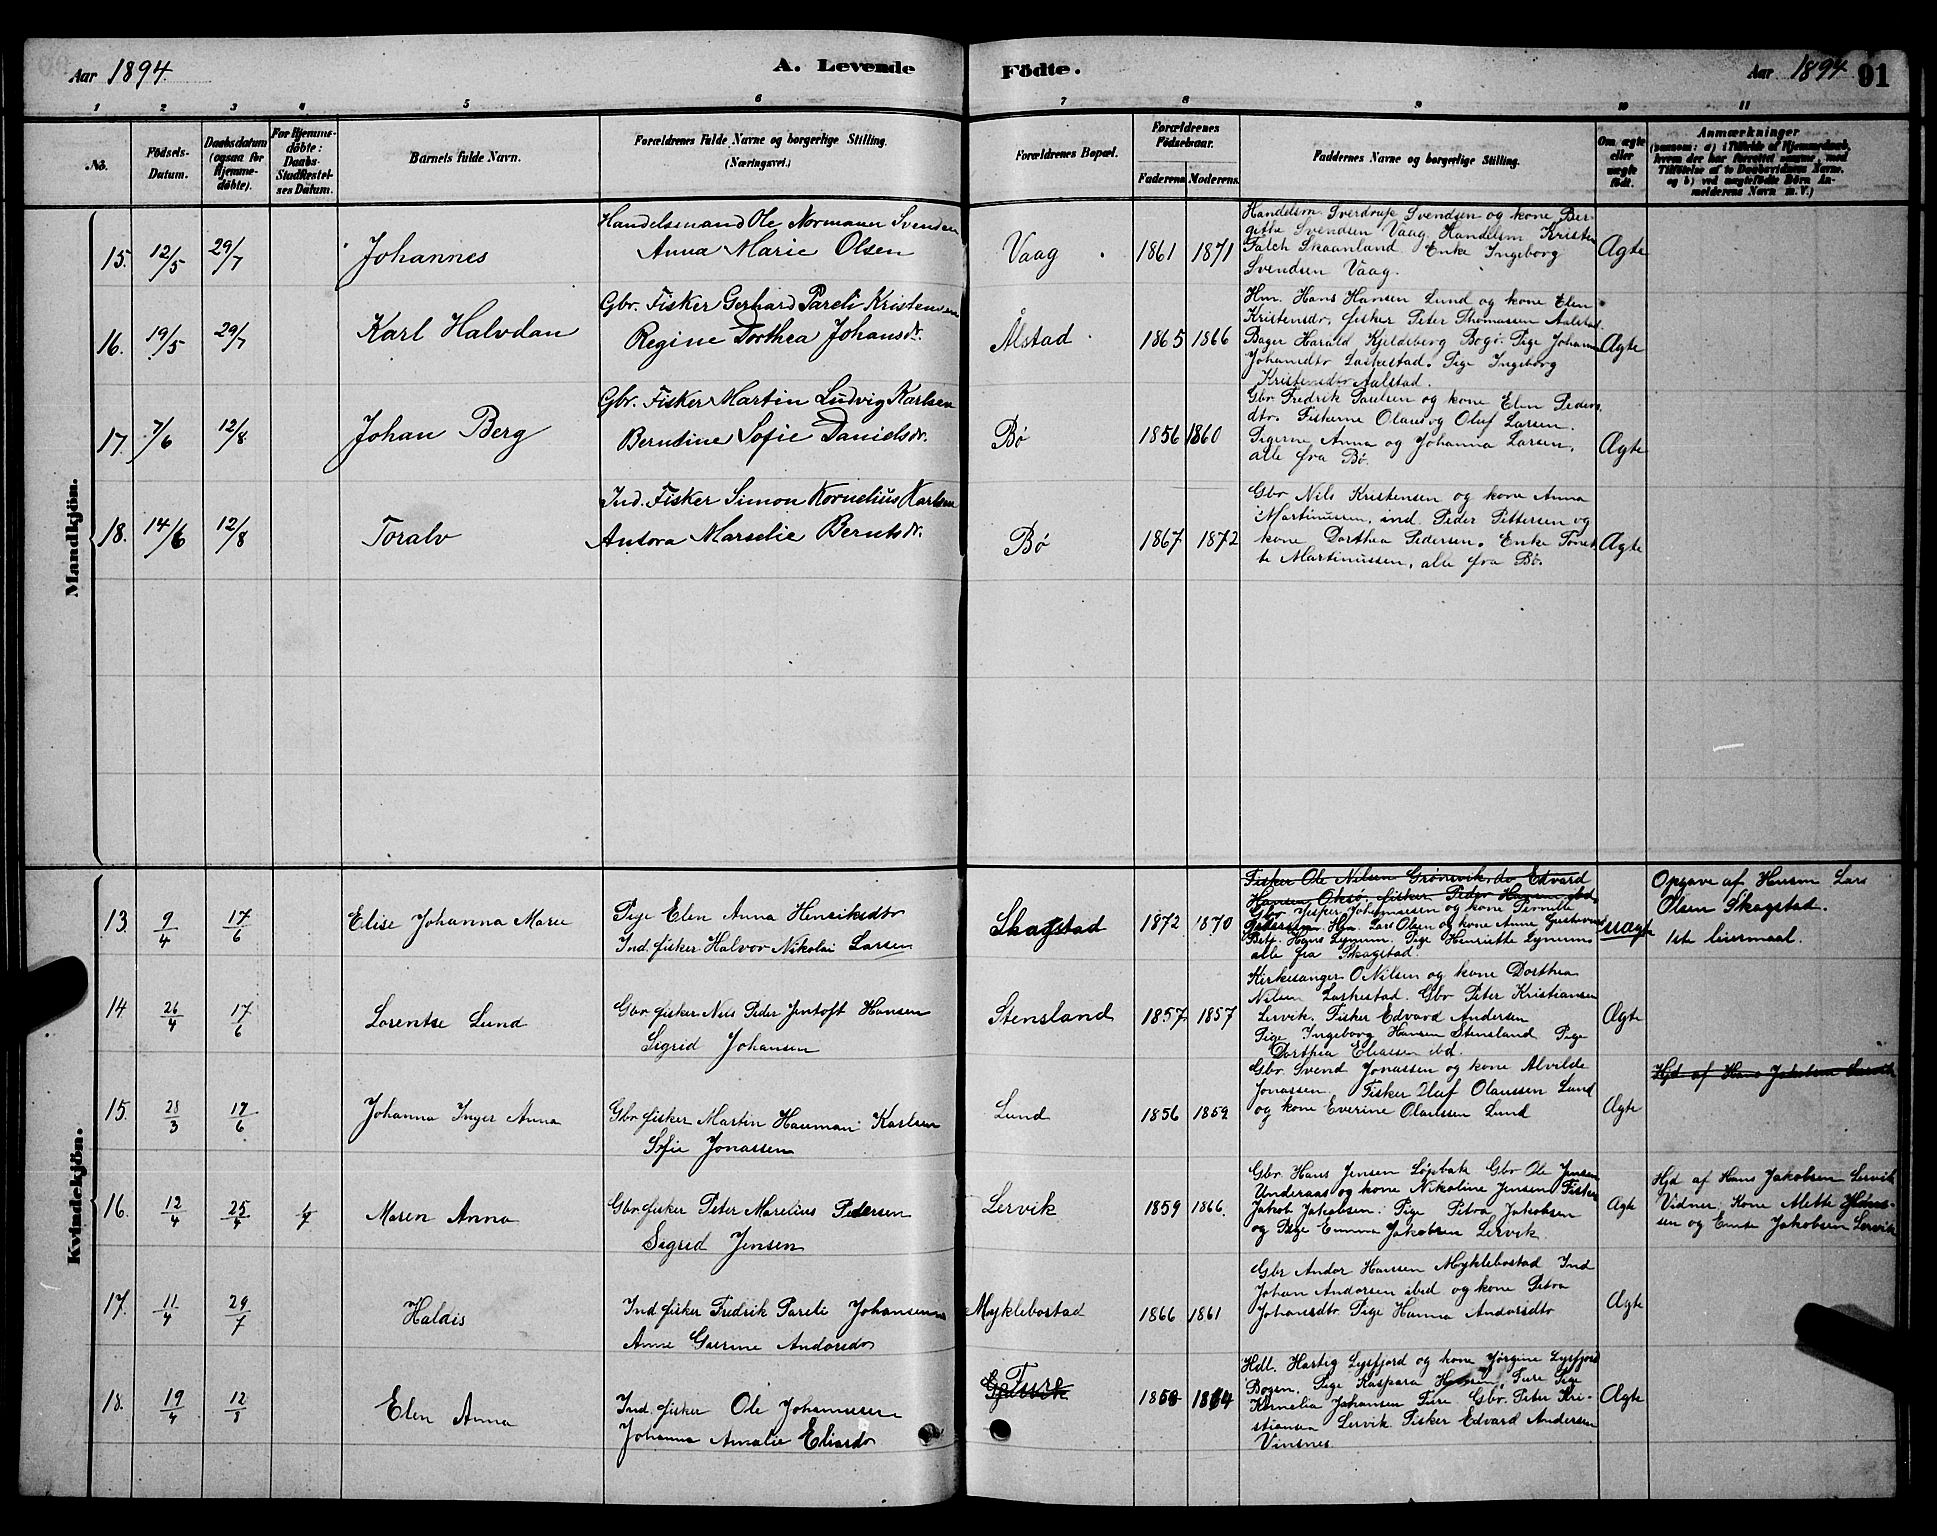 Aar 1894
A. Levende Födte.
Aar 1894 91
1 2 3 4 5 6 7 8 9 10 11
No.
Födsels-
Datum.
Daabsdatum
(ogsaa for
Hjemme-
döbte).
For Hjemme-
döbte:
Daabs-
Stadfæstel-
ses Datum.
Barnets fulde Navn.
Forældrenes fulde Navne og borgerlige Stilling.
(Næringsvei.)
Forældrenes Bopæl.
Forældrenes
Födselsaar.
Faderens Moderens
Faddernes Navne og borgerlige Stilling.
Om ægte
eller
uægte
födt.
Anmærkninger
(saasom: a) i Tilfælde af Hjemmedaab,
hvem der har forrettet samme, med
Tilföielse af to Daabsvidners Navne,
og b) ved uægtefödte Börn An-
melderens Navn m. V.)
Mandkjön.
15. 12/5 29/7 Johannes
Handelsmand Ole Normann Svendsen
Anna Marie Olsen
Vaag 1861 1871
Handelsm. Sverdrup Svendsen og kone Ber-
githe Svendsen Vaag. Handelsm. Kristen
Falch Skaanland Enke Ingeborg
Svendsen Vaag.
Ægte
16. 19/5 29/7 Karl Halvdan
Gbr. Fisker Gerhard Pareli Kristensen
Regine Dorthea Johansdr.
Ålstad 1865 1866
Hm. Hans Hansen Lund og kone Elen
Kristensdr, fisker Peter Thomassen Aalstad.
Bager Harald Kjeldsberg Bogø. Pige Johanna
Johansdtr Laskestad. Pige Ingeborg
Kristensdtr Aalstad.
Ægte
17. 7/6 12/8 Johan Berg
Gbr. Fisker Martin Ludvig Karlsen
Berntine Sofie Danielsdr.
Bø 1856 1860
Gbr Fredrik Paulsen og kone Elen Peders
dtr. Fiskerne Olaus og Oluf Larsen.
Pigerne Anna og Johanna Larsen,
alle fra Bø.
Ægte
18. 14/6 12/8 Toralv
Ind. Fisker Simon Kornelius Karlsen
Antora Marselie Berntsdr.
Bø 1867 1872
Gbr Nils Kristensen og kone Anna
Martinussen, ind. Peder Pettersen og
kone Dorthea Pedersen. Enke Tonet-
te Martinussen, alle fra Bø.
Ægte
Kvindekjön.
13. 9/4 17/6 Elise Johanna Marie
Pige Elen Anna Henriksdtr
Ind. fisker Halvor Nikolai Larsen
Skagstad 1872 1870
Fisker Ole Nilsen Grønsvik, do Edvard
Hansen Oksø, fisker Peder Hansen ibd.
Gbr. Jesper Johannessen og kone Pernille
Pedersen. Hm. Lars Olsen og kone Anne Gustava
Hans Lynum. Pige Henriette Lynum
alle fra Skagstad.
uægte
Opgave af Husm Lars
Olsen Skagstad.
1ste leiermaal.
14 26/4 17/6 Lorentse Lund
Gbr fisker Nils Peder Jentoft Hansen
Sigrid Johansen
Stensland 1857 1857
Kirkesanger O Nilsen og kone Dorthea
Nilsen Laskestad. Gbr Peter Kristiansen
Lervik. Fisker Edvard Andersen
Pige Ingeborg Hansen Stensland Pige
Dorthea Eliassen ibd.
Ægte
15. 28/3 17/6 Johanna Inger Anna
Gbr fisker Martin Hauman Karlsen
Sofie Jonassen
Lund 1856 1859
Gbr. Svend Jonassen og kone Alvilde
Jonassen, Fisker Oluf Olaussen Lund
og kone Everine Olaussen Lund
Ægte
Hjd af Hans Jakobsen Lervik
16. 12/4 25/4 Maren Anna
Gbr fisker Peter Marelius Pedersen
Sigrid Jensen
Lervik 1859 1866.
Gbr Hans Jensen Løpbak Gbr Ole Jensen
Underaas og kone Nikoline Jensen Fisker
Jakob Jakobsen. Pige Petra Jakobsen
og Pige Emma Jakobsen Lervik.
Ægte
Hjd af Hans Jakobsen Lervik
Vidner Kone Alette
sen og Emte Jakobsen Lervik
17. 11/4 29/7 Haldis
Ind fisker Fredrik Pareli Johansen
Anne Gurine Andorsdr
Myklebostad 1866 1861
Gbr Andor Hansen Myklebostad Ind
Johan Andorsen ibid og kone Petra
Johansdtr Pige Hanna Andorsdtr
Ægte
18. 19/4 12/8 Elen Anna
Ind. fisker Ole Johannesen
Johanna Amalie Eliasdr
Fure
1858 1864
Hdl. Hartvig Lysfjord og kone Jørgine Lysfjord
Bogen. Pige Kaspara Hansen, Fure Pige
Kornelia Johansen Fure. Gbr. Peter Kri-
stiansen Lervik Fisker Edvard Andersen
Vinsnes.
Ægte